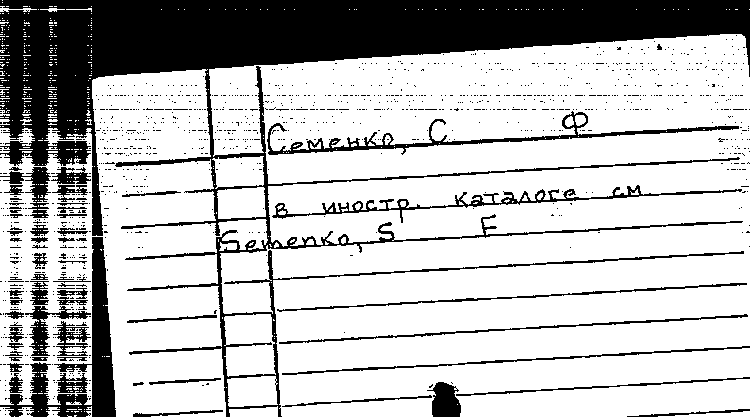 Семенко, С Ф
в иностр. каталоге см.
Semenko, S F